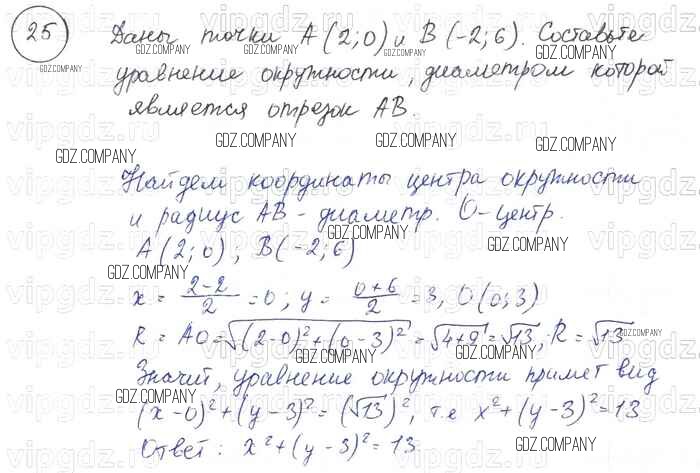 25 Даны точки A(2;0) и B(-2;6). Составьте
уравнение окружности, диаметром которой
является отрезок AB.
Найдем координаты центра окружности
и радиус AB - диаметр. O - центр.
A(2;0), B(-2;6)
x = \frac{2-2}{2} = 0; y = \frac{0+6}{2} = 3, O(0;3)
R = AO = √((2-0)²+(0-3)²) = √(4+9) = √13; R = √13
Значит, уравнение окружности примет вид
(x-0)²+(y-3)²=(√13)², т.е x²+(y-3)²=13
Ответ: x²+(y-3)²=13.